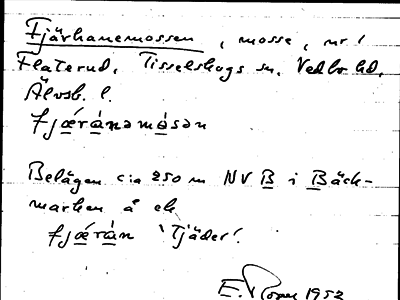 Fjärhanemossen, mosse, nr 1
Flaterud, Tisselskogs sn, Vedbo hd,
Älvsb. l.
fjæ̀rànəmåsən
Belägen c:a 250 m NV B i Bäck-
marken å ek
fjæ̀ràn 'Tjäder'.
E. 1952